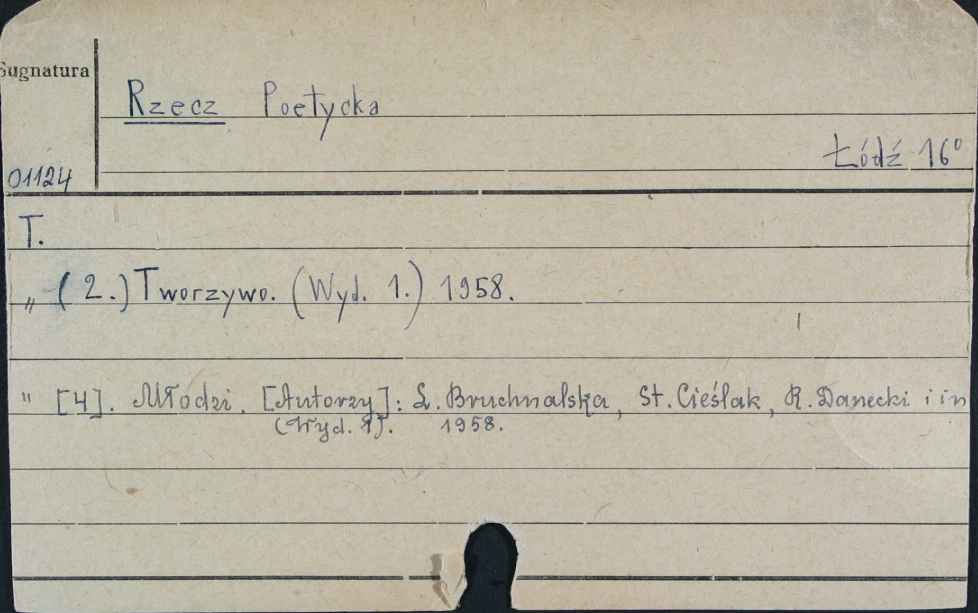 Sygnatura
Rzecz Poetycka
Łódź 16°
01124
T.
" (2.) Tworzywo. (Wyd. 1.) 1958.
" [4]. Młodzi. [Autorzy]: L. Bruchnalska, St. Cieślak, R. Danecki i in
(Wyd. 1). 1958.